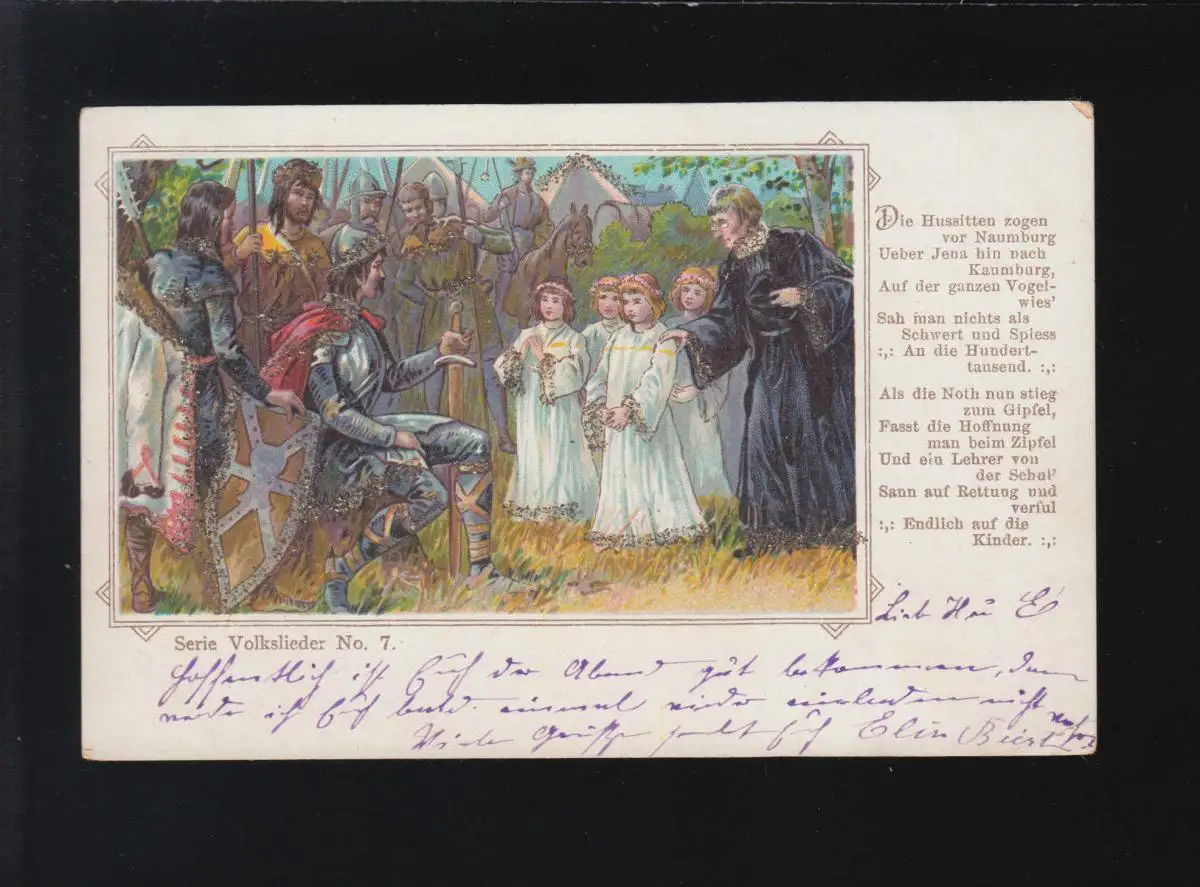 Die Hussitten zogen
vor Naumburg
Ueber Jena hin nach
Kaumburg,
Auf der ganzen Vogel-
wies'
Sah man nichts als
Schwert und Spiess
:,: An die Hundert-
tausend. :,:
Als die Noth nun stieg
zum Gipfel,
Fasst die Hoffnung
man beim Zipfel
Und ein Lehrer von
der Schul'
Sann auf Rettung und
verful
:,: Endlich auf die
Kinder. :,:
Serie Volkslieder No. 7.
Lieb
Hoffentlich ist Euch der Abend gut bekommen, dann
werde ich Euch bald einmal wieder einladen nicht
Viele Grüsse Euch